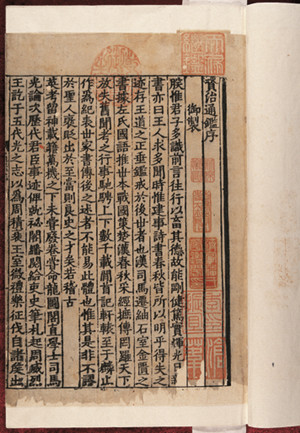 資治通鑑序
御製
朕惟君子多識前言往行以畜其德故能剛健篤實輝光日新
書亦曰王人求多聞時惟建事詩書春秋皆所以明乎得失之
迹存王道之正垂鑑戒於後世者也漢司馬遷紬石室金匱之
書據左氏國語推世本戰國策楚漢春秋采經摭傳罔羅天下
放失舊聞考之行事馳騁上下數千載間首記軒轅至于麟止
作為紀表世家書傳後之述者不能易此體也惟其是非不謬
於聖人褒貶出於至當則良史之才矣若稽古
英考留神載籍萬機之下未嘗廢卷嘗命龍圖閣直學士司馬
光論次歷代君臣事迹俾就秘閣繙閱給吏史筆札起周威烈
王訖于五代光之志以為周積衰王室微禮樂征伐自諸侯出